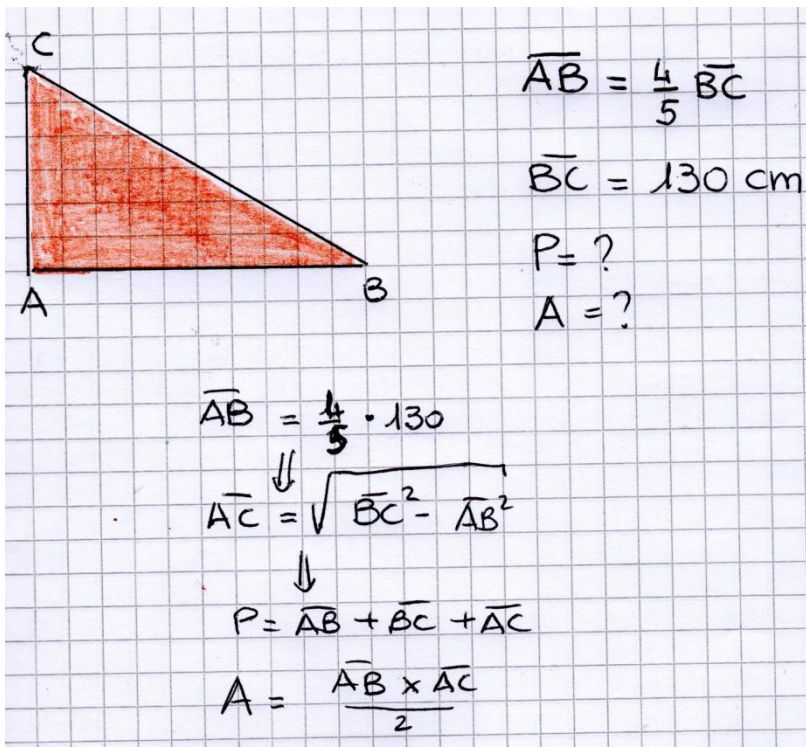 C
A
B
A̅B̅ = 4/5 B̅C̅
B̅C̅ = 130 cm
P = ?
A = ?
A̅B̅ = 4/5 · 130
⇓
A̅C̅ = √(B̅C̅² - A̅B̅²)
⇓
P = A̅B̅ + B̅C̅ + A̅C̅
A = (A̅B̅ × A̅C̅)/2